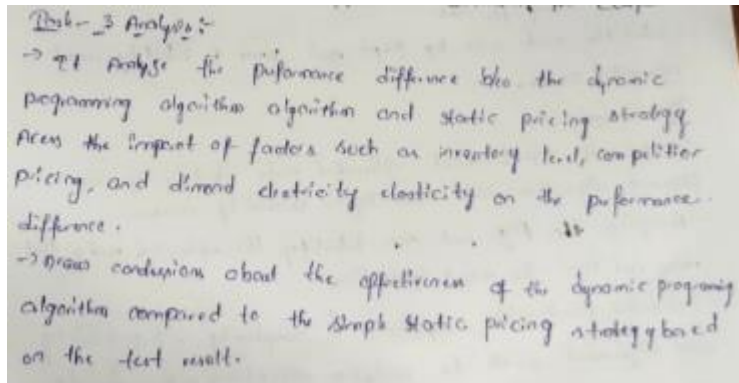 Task-3 Analysis:-
→ It Analyse the puformance diffrence b/w the dynamic
programming algorithm algorithm and static pricing strategy
Acess the impact of factors such as inventory level, competitor
pricing, and dimand eletricity elasticity on the puformance
diffrence.
→ Draws conclusions about the effectiveness of the dynamic programing
algorithm compared to the simple static pricing strategy based
on the test result.